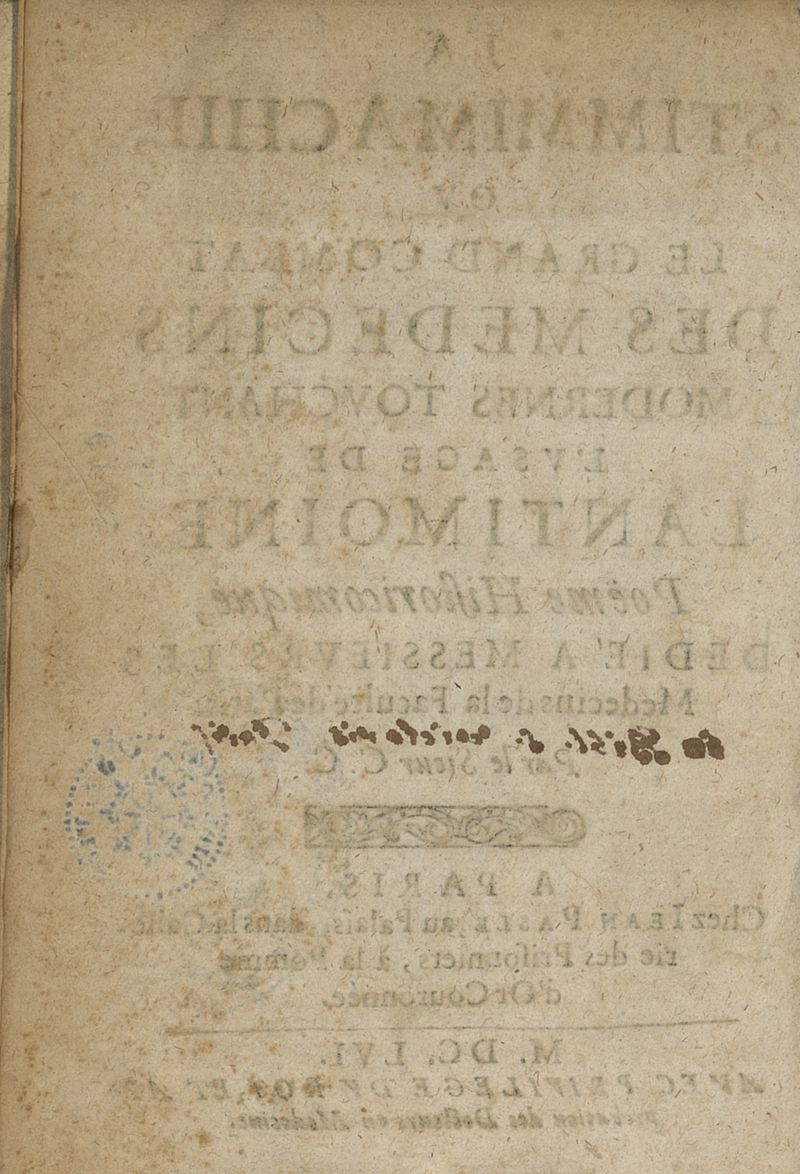 LA
STIMMIMACHIE,
OV
LE GRAND COMBAT
DES MEDECINS
MODERNES TOVCHANT
L'VSAGE DE
L'ANTIMOINE
Poëme Historicomique,
DEDIE' A MESSIEVRS LES
Medecins de la Faculté de
Par le Sieur C. C.
A PARIS,
Chez IEAN PASLÉ, au Palais, dans la Galle
rie des Prisonniers, à la Pomme
d'Or Couronnée.
M. DC. LVI.
AVEC PRIVILEGE DV ROY, ET
des Docteurs en Medecine.